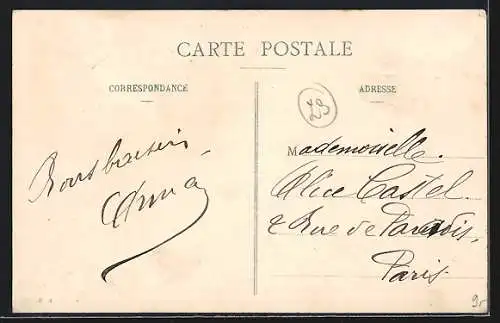 CARTE POSTALE
CORRESPONDANCE
ADRESSE
23
Bons baisers
Anna
Mademoiselle.
Alice Castel.
2 Rue de Paradis,
Paris.